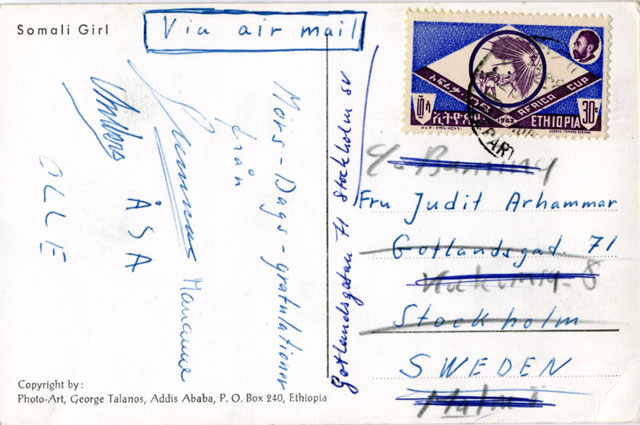 Somali Girl
Via air mail
Mors-Dags-gratulationer
från
Gunnar Marianne
ÅSA
OLLE
Gotlandsgatan 71 Stockholm SV
AFRICA CUP
ኢትዮጵያ
1962
ETHIOPIA
30c
Fru Judit Arhammar
Gotlandsgat. 71
Stockholm
SWEDEN
Malmö
Copyright by:
Photo-Art, George Talanos, Addis Ababa, P. O. Box 240, Ethiopia